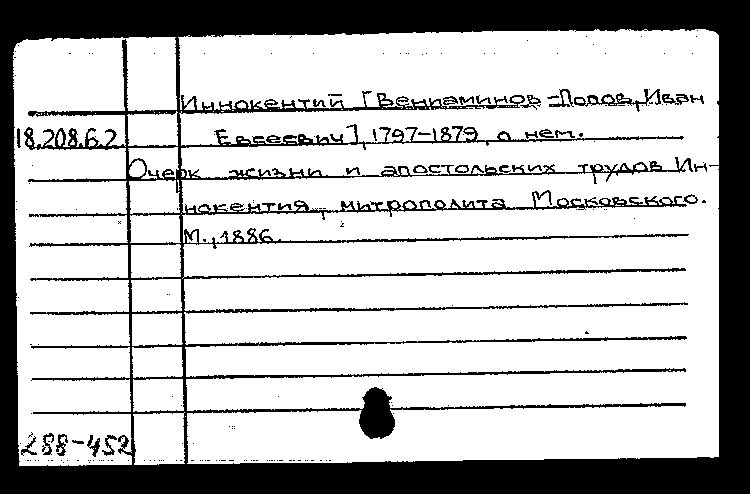 Иннокентий [Вениаминов-Попов, Иван
18.208.6.2. Евсеевич], 1797-1879, о нем.
Очерк жизни и апостольских трудов Ин-
нокентия, митрополита Московского.
М., 1886.
288-452